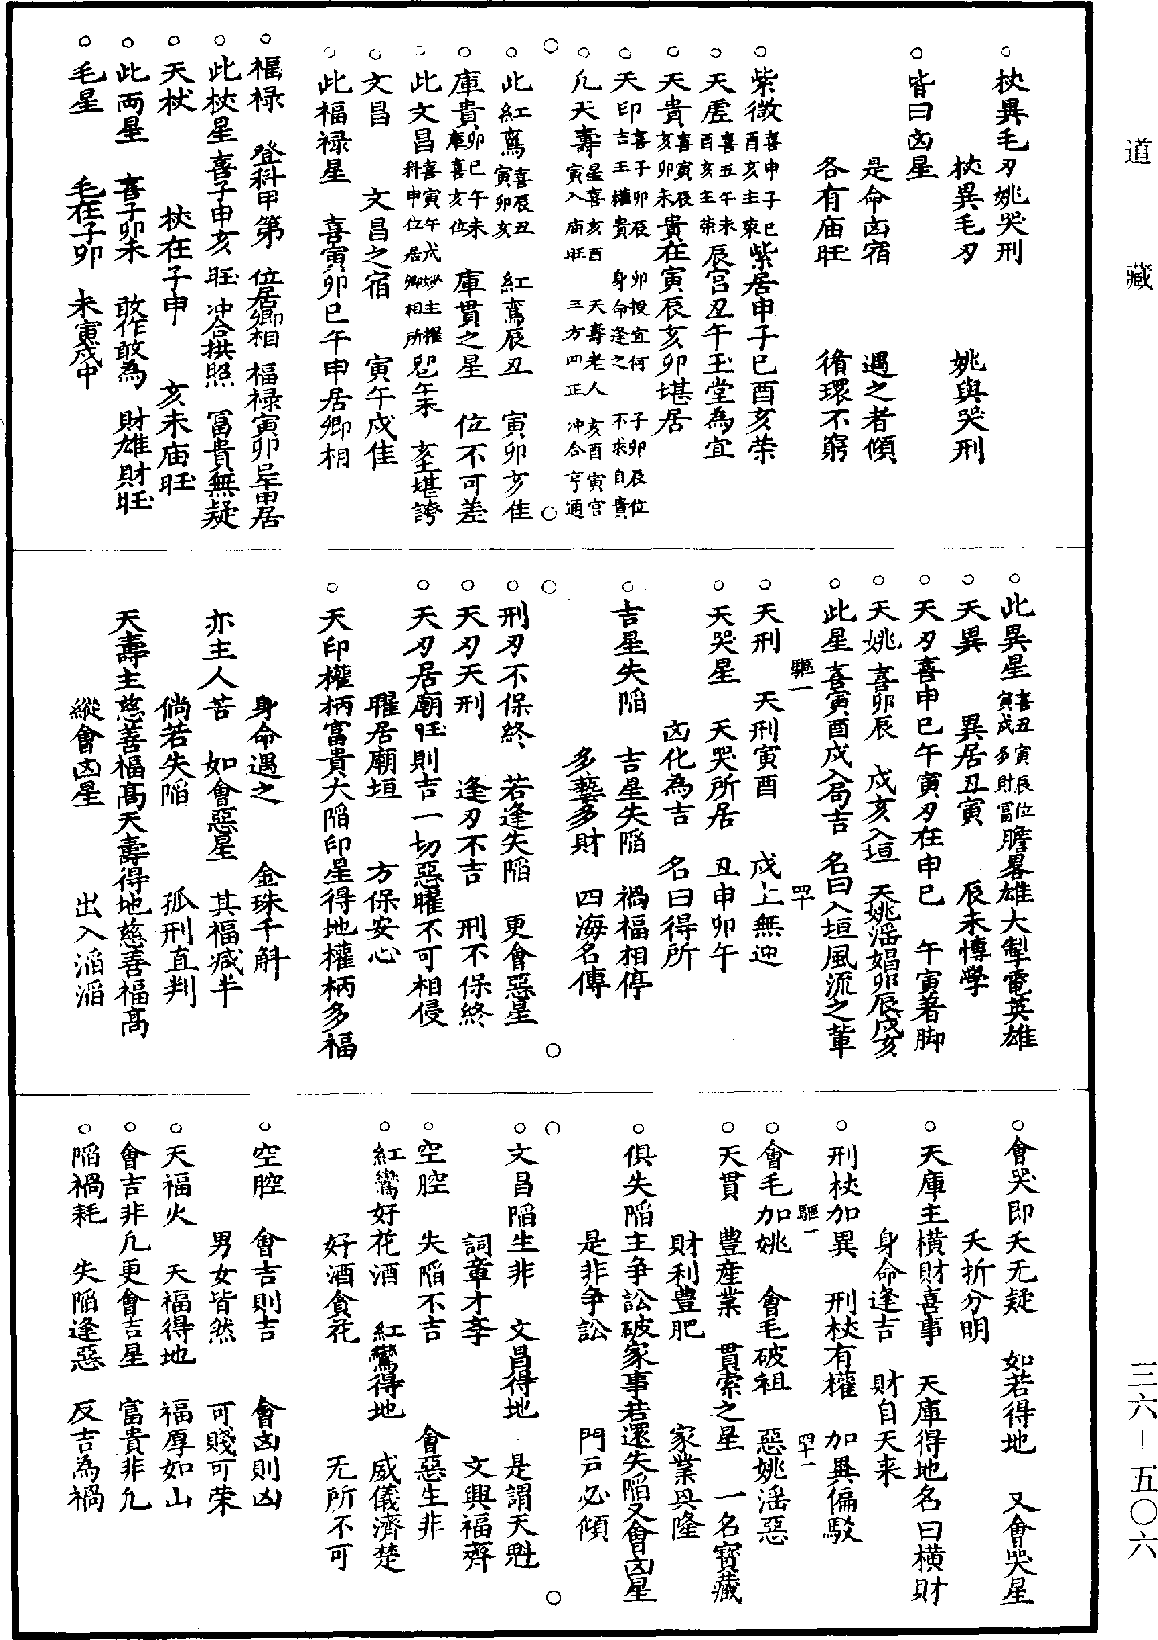 道藏
三六—五〇六
杖異毛刃姚哭刑
杖異毛刃　姚與哭刑
皆曰凶星
是命凶宿　遇之者傾
各有庙旺　循環不窮
紫微喜申子巳酉亥主荣紫居申子巳酉亥荣
天虛喜丑午未酉亥主荣辰宫丑午玉堂為宜
天貴喜寅辰亥卯未貴在寅辰亥卯堪居
天印喜子卯辰吉主權貴　卯投宜何身命逢之　子卯辰位不求自貴
凡天壽星喜亥酉寅入庙旺　天壽老人三方四正　亥酉寅宫冲合亨通
此紅鸞喜辰丑寅卯亥　紅鸞辰丑　寅卯亥佳
庫貴卯巳午未庫喜亥位　庫貫之星　位不可差
此文昌喜寅午戌
文昌　文昌之宿　寅午戌佳
此福禄星　喜寅卯巳午申居卿相
福禄　登科甲第　位居卿相　福禄寅卯巳午申居
此杖星喜子申亥旺　冲合拱照　冨貴無疑
天杖　杖在子申　亥未庙旺
此两星　喜子卯未　敢作敢為　財雄財旺
毛星　毛在子卯　未寅戌中
此異星喜丑寅辰位寅戌多財富膽畧雄大掣電英雄
天異　異居丑寅　辰未博學
天刃喜申巳午寅刃在申巳　午寅著脚
天姚喜卯辰　戌亥入垣　天姚淫娼卯辰戌亥
此星喜寅酉戌入局吉　名曰入垣風流之輩
驅一　四十
天刑　天刑寅酉　戌上無迎
天哭星　天哭所居　丑申卯午
凶化為吉　名曰得所
吉星失陷　吉星失陷　禍福相停
多藝多財　四海名傳
刑刃不保終　若逢失陷　更會惡星
天刃天刑　逢刃不吉　刑不保終
天刃居廟旺則吉一切惡曜不可相侵
曜居廟垣　方保安心
天印權柄富貴大陷印星得地權柄多福
身命遇之　金珠千斛
亦主人苦　如會惡星　其福减半
倘若失陷　孤刑直判
天壽主慈善福高天壽得地慈善福高
縱會凶星　出入滔滔
會哭即夭无疑　如若得地　又會哭星
夭折分明
天庫主横財喜事　天庫得地名曰横財
身命逢吉　財自天来
刑杖加異　刑杖有權　加異偏駁
驅一　四十一
會毛加姚　會毛破祖　惡姚淫惡
天貫　豊産業　貫索之星　一名寳藏
財利豊肥　家業興隆
俱失陷主争訟破家事若還失陷又會凶星
是非争訟　門戸必傾
文昌陷生非　文昌得地　是謂天魁
詞章才李　文興福齊
空腔　失陷不吉　會惡生非
紅鸞好花酒　紅鸞得地　威儀濟楚
好酒貪花　无所不可
空腔　會吉則吉　會凶則凶
男女皆然　可賤可荣
天福火　天福得地　福厚如山
會吉非凡更會吉星　富貴非凡
陷禍耗　失陷逢惡　反吉為禍